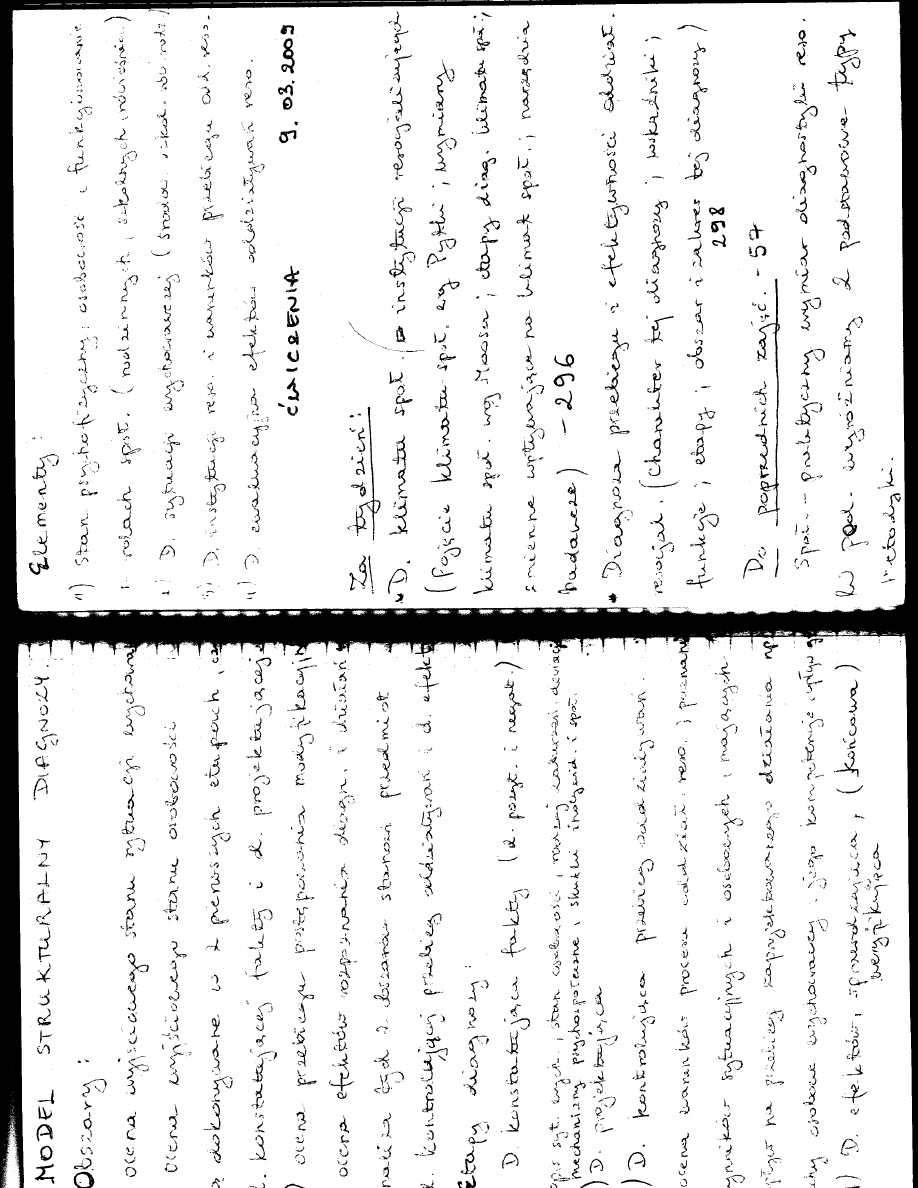 MODEL STRUKTURALNY DIAGNOZY.
Obszary:
ocena wyjściowego stanu sytuacji wychowaw
ocena wyjściowego stanu osobowości
dokonywane w 2 pierwszych etapach, cz
konstatującej fakty i d. projektującej
ocena przebiegu postępowania modyfikacyjn
ocena efektów rozpoznania diagn. i działań
tych 2 obszarów stanowi przedmiot
kontrolującej przebieg oddziaływań i d. efekt
Etapy diagnozy:
D. konstatująca fakty (d. pozyt. i negat.)
opis syt. wych., stan osobowości, rozwój zaburzeń, dewiacji
mechanizmy psychospołeczne, skutki indywid. i społ.
) D. projektująca
) D. kontrolująca przebieg oddziaływań.
ocena warunków procesu oddział. reso., poznan
ynników sytuacyjnych i osobowych, mających
pływ na przebieg zaprojektowanego działania np
chy osobowe wychowawcy, jego kompetencje
) D. efektów, sprawdzająca, (końcowa)
weryfikująca
Elementy:
1) Stan psychofizyczny, osobowość i funkcjonowanie
w rolach społ. (rodzinnych, szkolnych, rówieśnicz.)
2) D. sytuacji wychowawczej
3) D. instytucji reso. i warunków przebiegu odd. reso.
4) D. ewaluacyjna efektów oddziaływań reso.
ĆWICZENIA 9. 03. 2009
Za tydzień:
* D. klimatu społ. instytucji resocjalizujących
(Pojęcie klimatu społ. wg Pytki; wymiany
klimatu społ. wg Moosa; etapy diag. klimatu społ.;
zmienne wpływające na klimat społ.; narzędzia
badawcze) – 296
* Diagnoza przebiegu i efektywności oddział.
resocjal. (Charakter tej diagnozy; wskaźniki;
funkcje; etapy; obszar i zakres tej diagnozy)
298
Do poprzednich zajęć. - 57
Społ. - praktyczny wymiar diagnostyki reso.
W ped. wyróżniamy 2 podstawowe typy
metodyki.